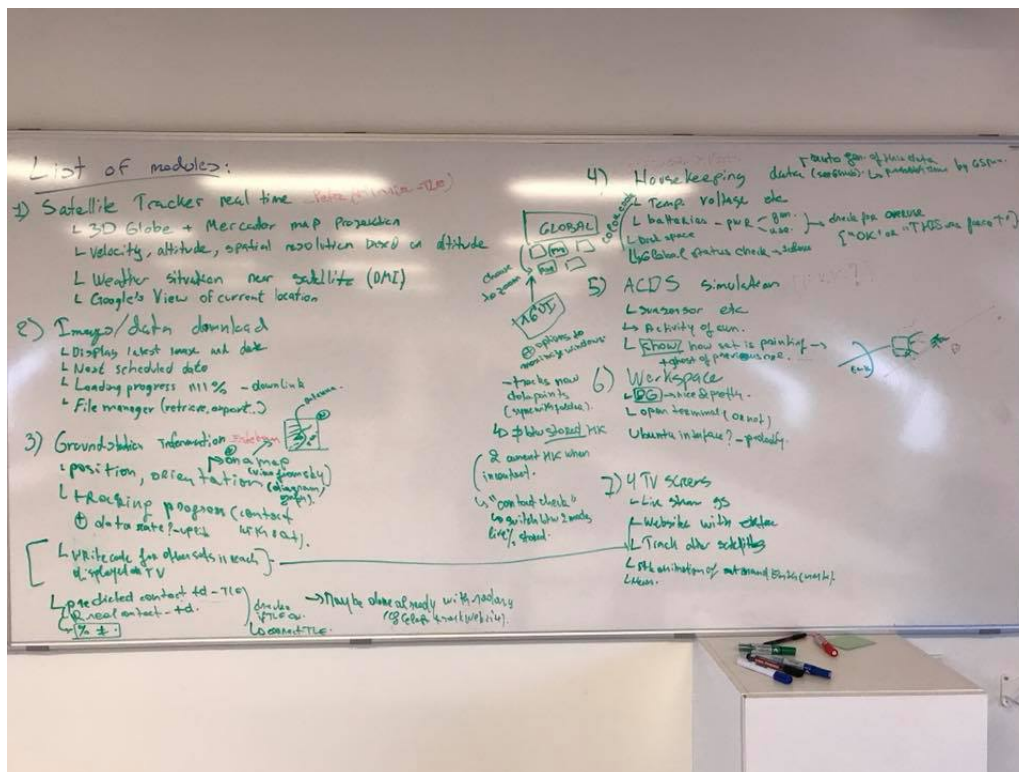 List of modules:
1) Satellite Tracker real time
↳ 3D Globe + Mercador map Projection
↳ Velocity, altitude, spatial resolution based on altitude
↳ Weather situation near satellite (DMI)
↳ Google's View of current location
2) Image/data download
↳ Display latest image and date
↳ Next scheduled date
↳ Loading progress n11% - downlink
↳ File manager (retrieve, export..)
3) Ground station information
antenna
↳ position, orientation
on a map
(view from sky)
(diagram,
↳ tracking program (contact
with sat).
⊕ data rate?
↳ Write code for other sats in reach
displayed on TV
↳ predicted contact td - TLE
real contact - td.
% ±
↳ correct TLE.
→ Maybe done already with
GLOBAL
choose
to zoom
color code
16UI
⊕ options to
maximize windows
- tracks new
data points
stored HK
2 current HK when
in contact.
↳ "contact check"
↳ switch btw 2 modes
live/stored
4) Housekeeping data
auto gen. of HK data
by GS
↳ Temp. voltage etc
↳ batteries - pwr gen.
use.
check for overuse
↳ Disk space
↳ Global status check
5) ACDS simulation
↳ sunsensor etc
↳ Activity of sun.
↳ Show how sat is pointing →
+ ghost of previous one.
6) Workspace
↳ BG → nice & pretty.
↳ open terminal (or not)
Ubuntu interface? - probably.
7) 4 TV screens
↳ Live stream gs
↳ Website with data
↳ Track other satellites
↳ News.